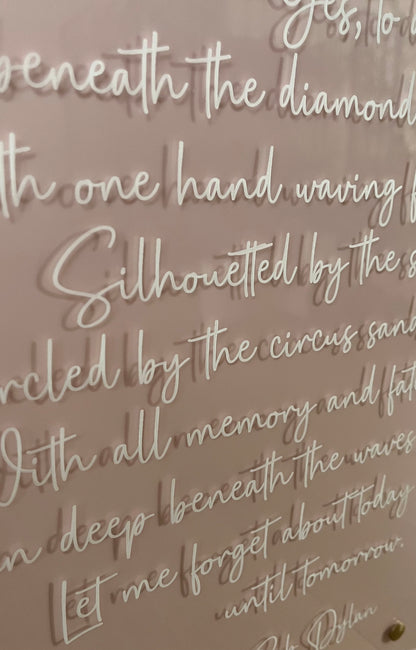 Yes, to
beneath the diamond
one hand waving
Silhouetted by the
circus
by the
With all memory and
deep beneath the waves
Let me forget about today
until tomorrow.
Dylan